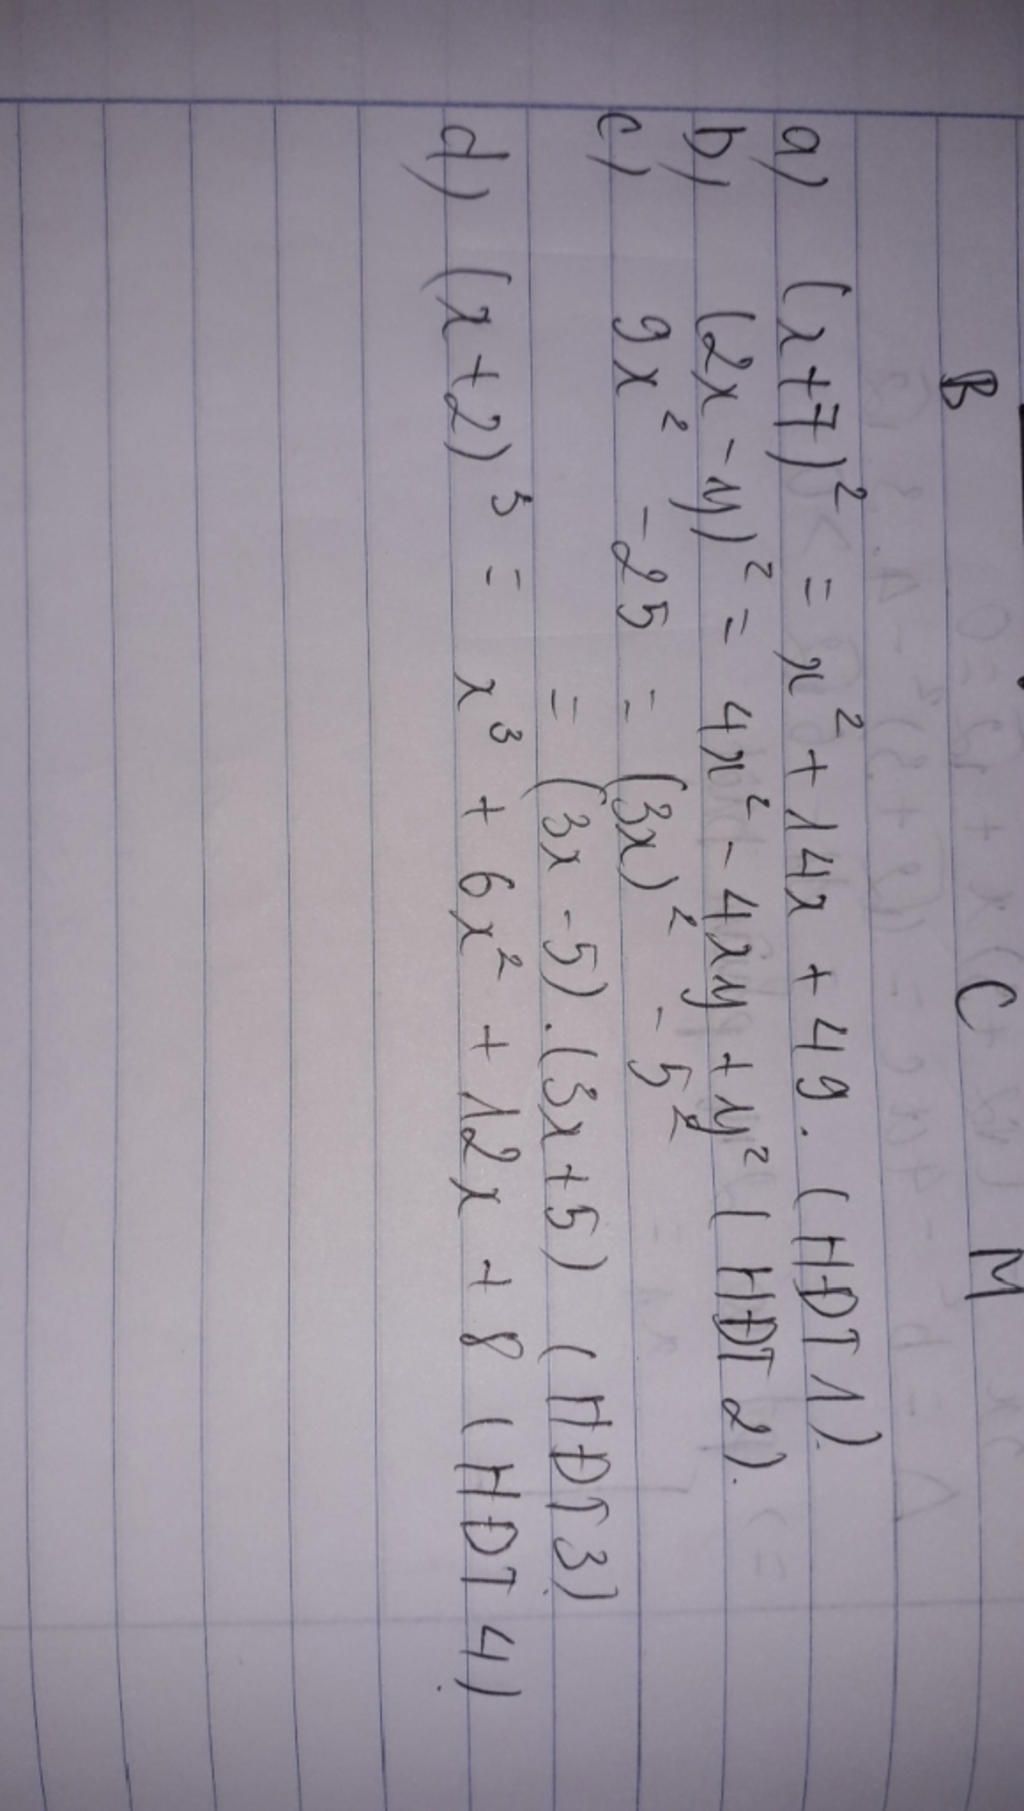 B C M
a) (x+7)² = x² + 14x + 49. (HĐT 1).
b) (2x - y)² = 4x² - 4xy + y² (HĐT 2).
c) 9x² - 25 = (3x)² - 5²
= (3x - 5).(3x + 5) (HĐT 3).
d) (x+2)³ = x³ + 6x² + 12x + 8 (HĐT 4).